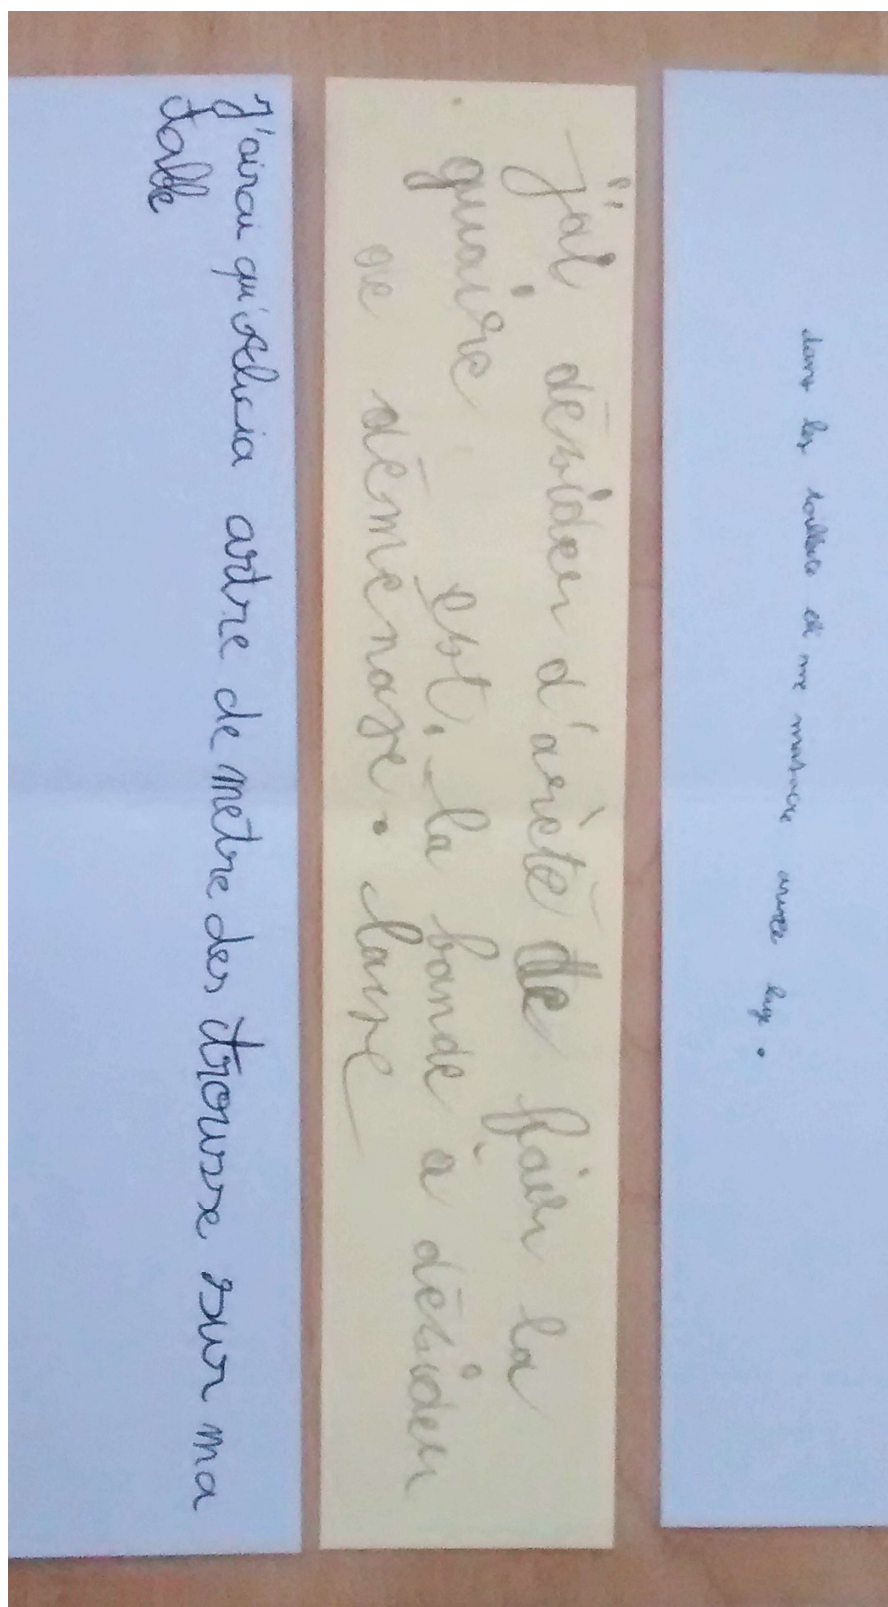 dans les toillete et me masacre avece luy.
j'ai désider d'arèté de fair la
guaire est, la bande à désider
ne déménase. laure
J'airai qu'Alicia artre de metre des trousse sur ma
table